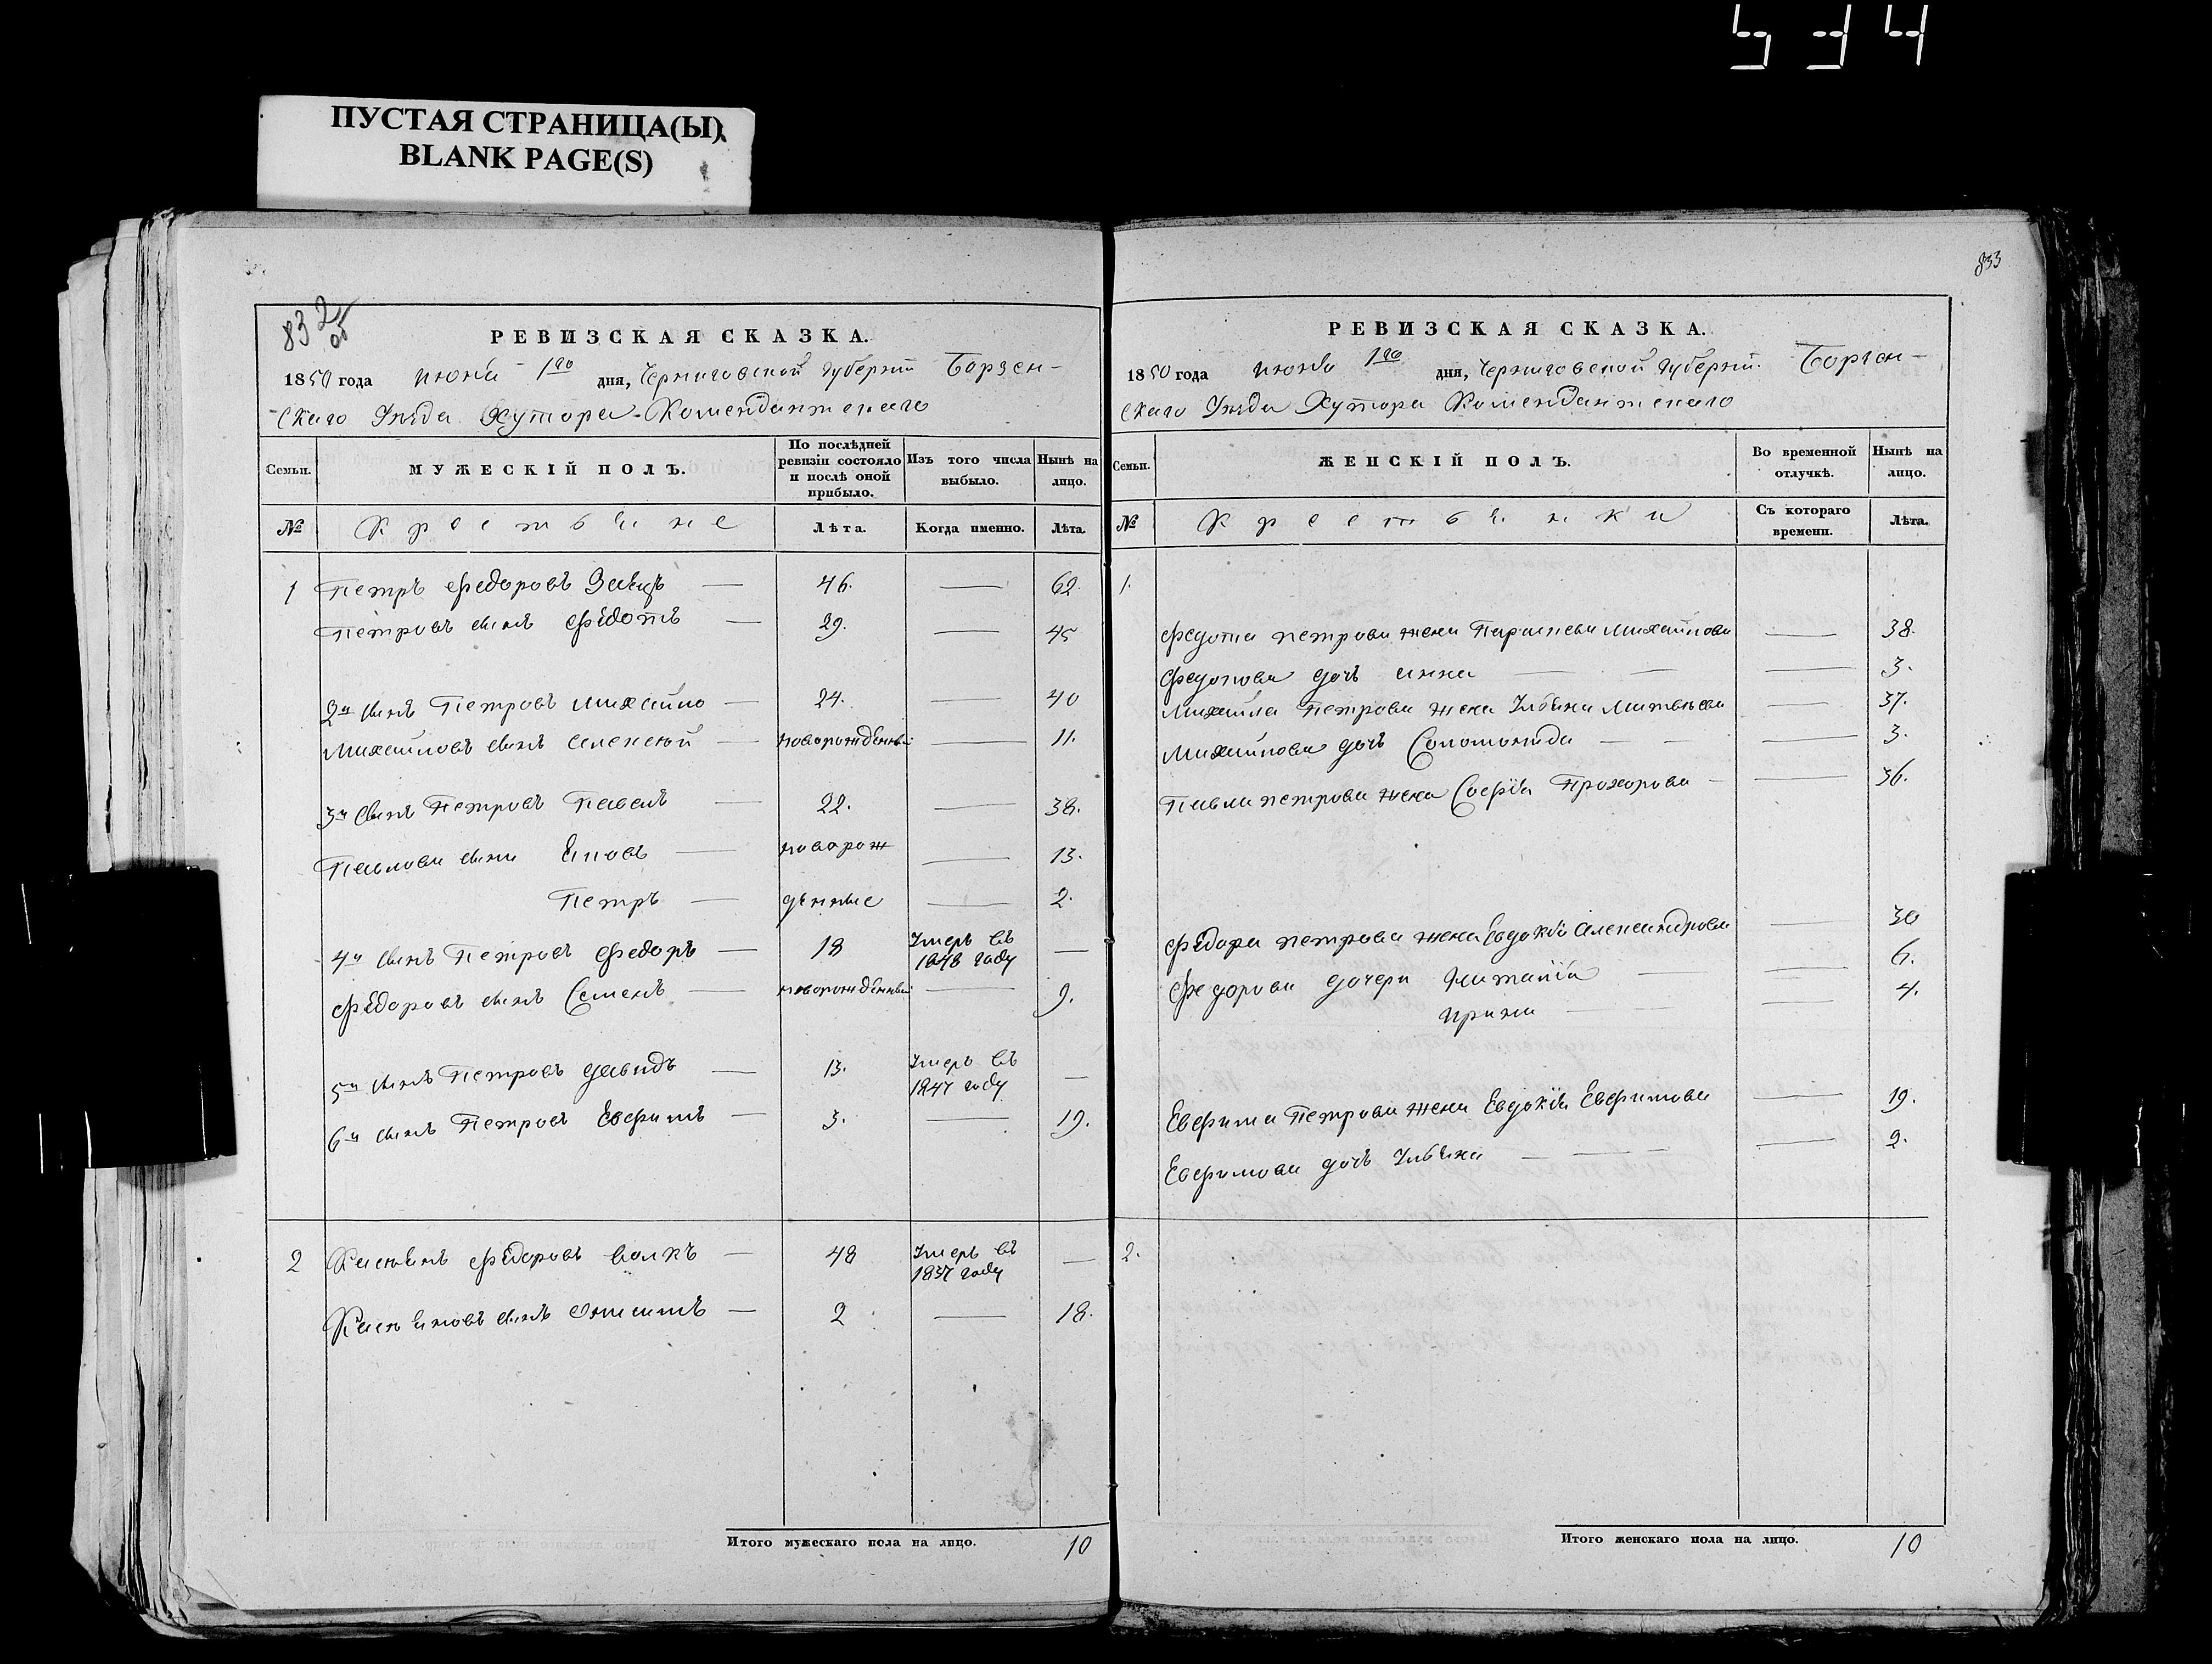 534
ПУСТАЯ СТРАНИЦА(Ы)
BLANK PAGE(S)
832 об
РЕВИЗСКАЯ СКАЗКА.
1850 года июня 1го дня, Черниговской губерніи Борзен-
скаго Уѣзда Хутора Комендантскаго
Семьи. МУЖЕСКІЙ ПОЛЪ. По послѣдней ревизіи состояло и послѣ оной прибыло. Изъ того числа выбыло. Нынѣ на лицо.
№ Крестьяне Лѣта. Когда именно. Лѣта.
1 Петръ Федоровъ Заяцъ — 46. — 62.
Петровъ сынъ Федотъ — 29. — 45
2й сынъ Петровъ Михайло — 24. — 40
Михайловъ сынъ Алексей — новорожденный — 11.
3й сынъ Петровъ Павелъ — 22. — 38.
Павлови сыни Яковъ — новорож — 13.
Петръ — денные — 2.
4й сынъ Петровъ Федоръ — 18 Умеръ въ 1848 году —
Федоровъ сынъ Семенъ — новорожденный — 9.
5й сынъ Петровъ Давидъ — 13. Умеръ въ 1847 году —
6й сынъ Петровъ Евфимъ — 3. — 19.
2 Касянъ Федоровъ Волкъ — 48 Умеръ въ 1837 году —
Касяновъ сынъ Онисимъ — 2 — 18.
Итого мужескаго пола на лицо. 10
833
РЕВИЗСКАЯ СКАЗКА.
1850 года июня 1го дня, Черниговской губерніи Борзен-
скаго Уѣзда Хутора Комендантскаго
Семьи. ЖЕНСКІЙ ПОЛЪ. Во временной отлучкѣ. Нынѣ на лицо.
№ Крестьянки Съ котораго времени. Лѣта.
1.
Федота Петрова жена Параскева Михайлова — 38.
Федотова дочь Анна — — — 3.
Михайла Петрова жена Ульяна Матвѣева — 37.
Михайлова дочь Соломонида — — — 3.
Павла Петрова жена Софія Прохорова — — 36.
Федора Петрова жена Евдокія Александрова — 30
Федорови дочери Наталія — — 6.
Ирина — — 4.
Евфима Петрова жена Евдокія Евфимова — 19.
Евфимова дочь Ульяна — — — — 2.
2.
Итого женскаго пола на лицо. 10